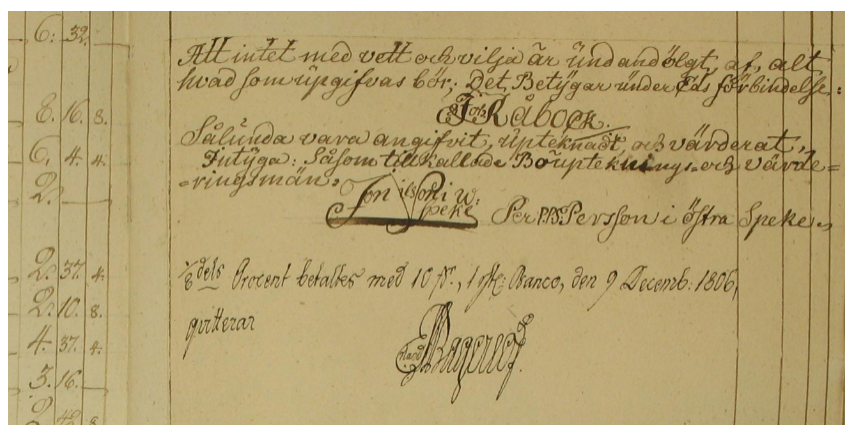 6. 32.
8. 16. 8.
6. 4. 4.
2.
2. 37. 4.
2. 10. 8.
4. 37. 4.
3. 16.
Att intet med vett och vilja är undandölgt, af, alt
hvad som upgifvas bör; Det, Betygar under Eds förbindelse:
Råbock.
Sålunda vara angifvit, upteknadt, och värderat,
Intyga: Såsom tillkallade Boupteknings- och värde=
=ringsmän:
Jon Nils Son i W:
Speke
Per P.P.S. Persson i östra Speke.
1/8 dels Procent betaltes med 10 , 1 sk: Banco, den 9 Decemb: 1806,
qvitterar